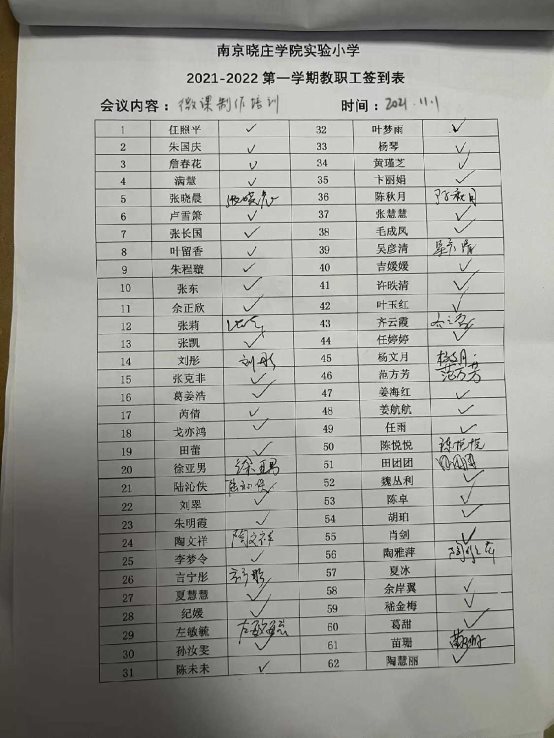 南京晓庄学院实验小学
2021-2022 第一学期教职工签到表
会议内容：微课制作培训 时间：2021.11.1
1 任照平 ✓ 32 叶梦雨 ✓
2 朱国庆 ✓ 33 杨琴 ✓
3 詹春花 ✓ 34 黄瑾芝 ✓
4 满慧 ✓ 35 卞丽娟 ✓
5 张晓晨 36 陈秋月 陈秋月
6 卢雪箫 ✓ 37 张慧慧 ✓
7 张长国 ✓ 38 毛成凤 ✓
8 叶留香 ✓ 39 吴彦清 吴彦清
9 朱程璇 ✓ 40 吉媛媛 ✓
10 张东 ✓ 41 许昳清 ✓
11 余正欣 ✓ 42 叶玉红 ✓
12 张莉 43 齐云霞
13 张凯 ✓ 44 任婷婷 ✓
14 刘彤 刘彤 45 杨文月 杨文月
15 张克非 ✓ 46 范方芳 范方芳
16 葛姜浩 ✓ 47 姜海红 ✓
17 芮倩 ✓ 48 姜航航 ✓
18 戈亦鸿 ✓ 49 任雨 ✓
19 田蕾 ✓ 50 陈悦悦 陈悦悦
20 徐亚男 徐亚男 51 田团团 田团团
21 陆沁佚 陆沁佚 52 魏丛利 ✓
22 刘翠 ✓ 53 陈卓 ✓
23 朱明霞 ✓ 54 胡珀 ✓
24 陶文祥 陶文祥 55 肖剑 ✓
25 李梦令 ✓ 56 陶雅萍 陶雅萍
26 言宁彤 57 夏冰
27 夏慧慧 ✓ 58 余岸翼 ✓
28 纪媛 ✓ 59 嵇金梅 ✓
29 左敏毓 左敏毓 60 葛甜 ✓
30 孙汝雯 ✓ 61 苗珊 苗珊
31 陈未未 ✓ 62 陶慧丽 ✓